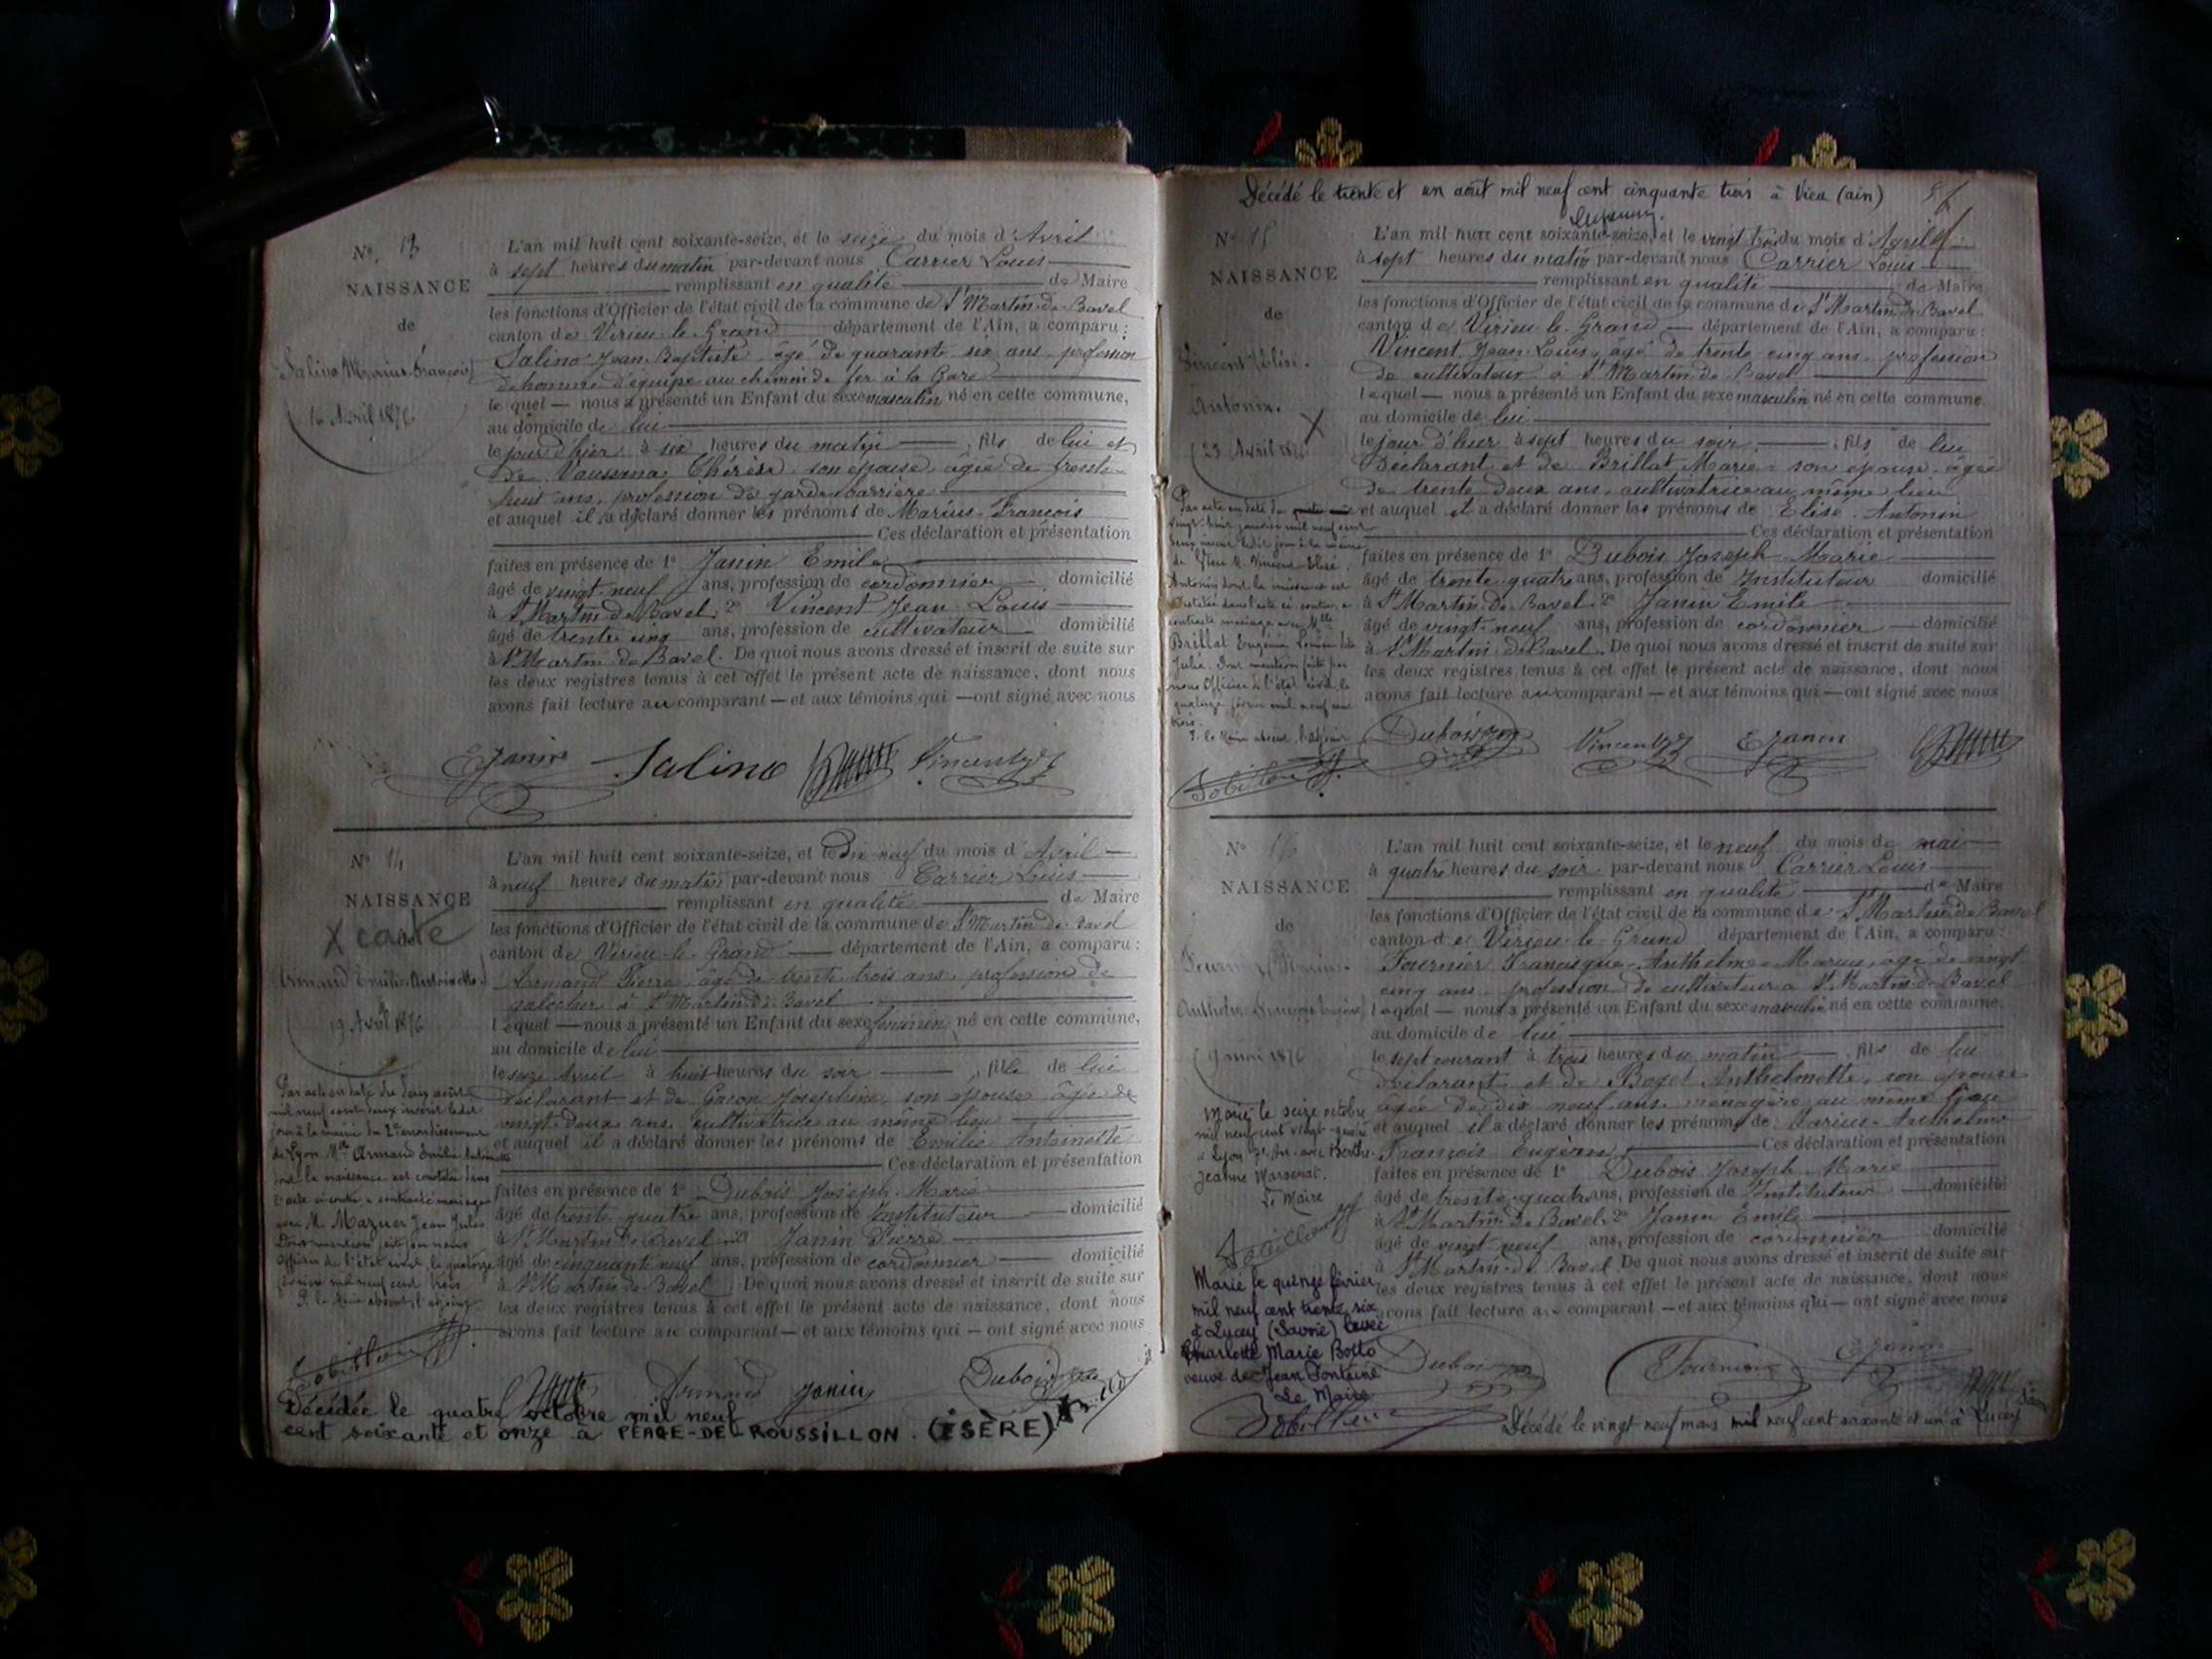 N° 13
NAISSANCE
de
Salino Marius François
16 Avril 1876
L'an mil huit cent soixante-seize, et le seize du mois d'Avril
à sept heures du matin par-devant nous Carrier Louis
remplissant en qualité de Maire
les fonctions d'Officier de l'état civil de la commune de St Martin de Bavel
canton de Virieu-le-Grand département de l'Ain, a comparu :
Salino Jean Baptiste, âgé de quarante six ans, profession
d'homme d'équipe au chemin de fer à la Gare
le quel — nous a présenté un Enfant du sexe masculin né en cette commune,
au domicile de lui
le jour d'hier à six heures du matin —, fils de lui et
de Vaussena Thérèse son épouse, âgée de trente
huit ans, profession de garde barrière
et auquel il a déclaré donner les prénoms de Marius-François
Ces déclaration et présentation
faites en présence de 1° Janin Emile
âgé de vingt-neuf ans, profession de cordonnier domicilié
à St Martin de Bavel, 2° Vincent Jean Louis
âgé de trente cinq ans, profession de cultivateur domicilié
à St Martin de Bavel. De quoi nous avons dressé et inscrit de suite sur
les deux registres tenus à cet effet le présent acte de naissance, dont nous
avons fait lecture au comparant — et aux témoins qui — ont signé avec nous
E Janin Salino Vincent
N° 14
NAISSANCE
de
X carte
Armand Emilie-Antoinette
19 Avril 1876
L'an mil huit cent soixante-seize, et le Dix-neuf du mois d'Avril
à neuf heures du matin par-devant nous Carrier Louis
remplissant en qualité de Maire
les fonctions d'Officier de l'état civil de la commune de St Martin de Bavel
canton de Virieu-le-Grand — département de l'Ain, a comparu :
Armand Pierre, âgé de trente trois ans, profession de
galocher à St Martin de Bavel
lequel — nous a présenté un Enfant du sexe féminin né en cette commune,
au domicile de lui
le seize Avril à huit heures du soir —, fille de lui
déclarant et de Gacon Joséphine, son épouse âgée de
vingt-deux ans, cultivatrice au même lieu
et auquel il a déclaré donner les prénoms de Emilie Antoinette
Ces déclaration et présentation
faites en présence de 1° Dubois Joseph-Marie
âgé de trente-quatre ans, profession de Instituteur domicilié
à St Martin de Bavel 2° Janin Pierre
âgé de cinquante neuf ans, profession de cordonnier — domicilié
à St Martin de Bavel. De quoi nous avons dressé et inscrit de suite sur
les deux registres tenus à cet effet le présent acte de naissance, dont nous
avons fait lecture au comparant — et aux témoins qui — ont signé avec nous
Par acte en date du deux août
mil neuf cent deux inscrit ledit
jour à la mairie du 2e arrondissement
de Lyon Mlle Armand Emilie Antoinette
dont la naissance est constatée dans
l'acte ci-contre a contracté mariage
avec M. Mazuer Jean Jules
Dont mention faite par nous
Officier de l'état civil, le quatorze
février mil neuf cent trois
P. le Maire absent, l'adjoint
Armand Janin Dubois
Décédée le quatre octobre mil neuf
cent soixante et onze à PÉAGE-DE-ROUSSILLON. (ISÈRE).
Décédé le trente et un août mil neuf cent cinquante trois à Vieu (ain)
N° 15
NAISSANCE
de
Vincent Elisé-
Antonin.
X
(23 Avril 1876
L'an mil huit cent soixante-seize, et le vingt trois du mois d'Avril
à sept heures du matin par-devant nous Carrier Louis
remplissant en qualité de Maire
les fonctions d'Officier de l'état civil de la commune de St Martin de Bavel
canton de Virieu-le-Grand — département de l'Ain, a comparu :
Vincent Jean Louis, âgé de trente cinq ans, profession
de cultivateur à St Martin de Bavel
lequel — nous a présenté un Enfant du sexe masculin né en cette commune,
au domicile de lui
le jour d'hier à sept heures du soir —, fils de lui
Déclarant et de Brillat Marie son épouse, âgée
de trente deux ans, cultivatrice au même lieu
et auquel il a déclaré donner les prénoms de Elisé-Antonin
Ces déclaration et présentation
faites en présence de 1° Dubois Joseph-Marie
âgé de trente-quatre ans, profession de Instituteur domicilié
à St Martin de Bavel 2° Janin Emile
âgé de vingt-neuf ans, profession de cordonnier — domicilié
à St Martin de Bavel. De quoi nous avons dressé et inscrit de suite sur
les deux registres tenus à cet effet le présent acte de naissance, dont nous
avons fait lecture au comparant — et aux témoins qui — ont signé avec nous
Par acte en date du
vingt huit janvier mil neuf cent
M. Vincent Elisé
Antonin dont la naissance est
constatée dans l'acte ci-contre, a
contracté mariage avec Mlle
Brillat Eugénie Louise dite
Julie. Dont mention faite par
nous Officier de l'état civil le
quatorze février mil neuf cent
trois.
P. le Maire absent, l'adjoint
Dubois Vincent E Janin
N° 16
NAISSANCE
de
Fournier Marius-
Anthelme François Eugène
(9 mai 1876
L'an mil huit cent soixante-seize, et le neuf du mois de mai
à quatre heures du soir par-devant nous Carrier Louis
remplissant en qualité de Maire
les fonctions d'Officier de l'état civil de la commune de St Martin de Bavel
canton de Virieu-le-Grand département de l'Ain, a comparu :
Fournier Francisque-Anthelme-Marius, âgé de vingt
cinq ans, profession de cultivateur à St Martin de Bavel
lequel — nous a présenté un Enfant du sexe masculin né en cette commune,
au domicile de lui
le sept courant à trois heures du matin —, fils de lui
déclarant et de Bozet Anthelmette, son épouse
âgée de dix neuf ans, ménagère au même lieu
et auquel il a déclaré donner les prénoms de Marius-Anthelme
François Eugène. Ces déclaration et présentation
faites en présence de 1° Dubois Joseph Marie
âgé de trente-quatre ans, profession de Instituteur — domicilié
à St Martin de Bavel. 2° Janin Emile
âgé de vingt neuf ans, profession de cordonnier domicilié
à St Martin de Bavel De quoi nous avons dressé et inscrit de suite sur
les deux registres tenus à cet effet le présent acte de naissance, dont nous
avons fait lecture au comparant — et aux témoins qui — ont signé avec nous
Marié le seize octobre
mil neuf cent vingt-
à Lyon avec Berthe
Jeanne
Le Maire
Marié le quinze février
mil neuf cent trente six
à Lucey (Savoie) avec
Charlotte Marie Botto
veuve de Jean Fontaine
Le Maire
Dubois Fournier E Janin
Décédé le vingt neuf mars mil neuf cent soixante et un à Lucey